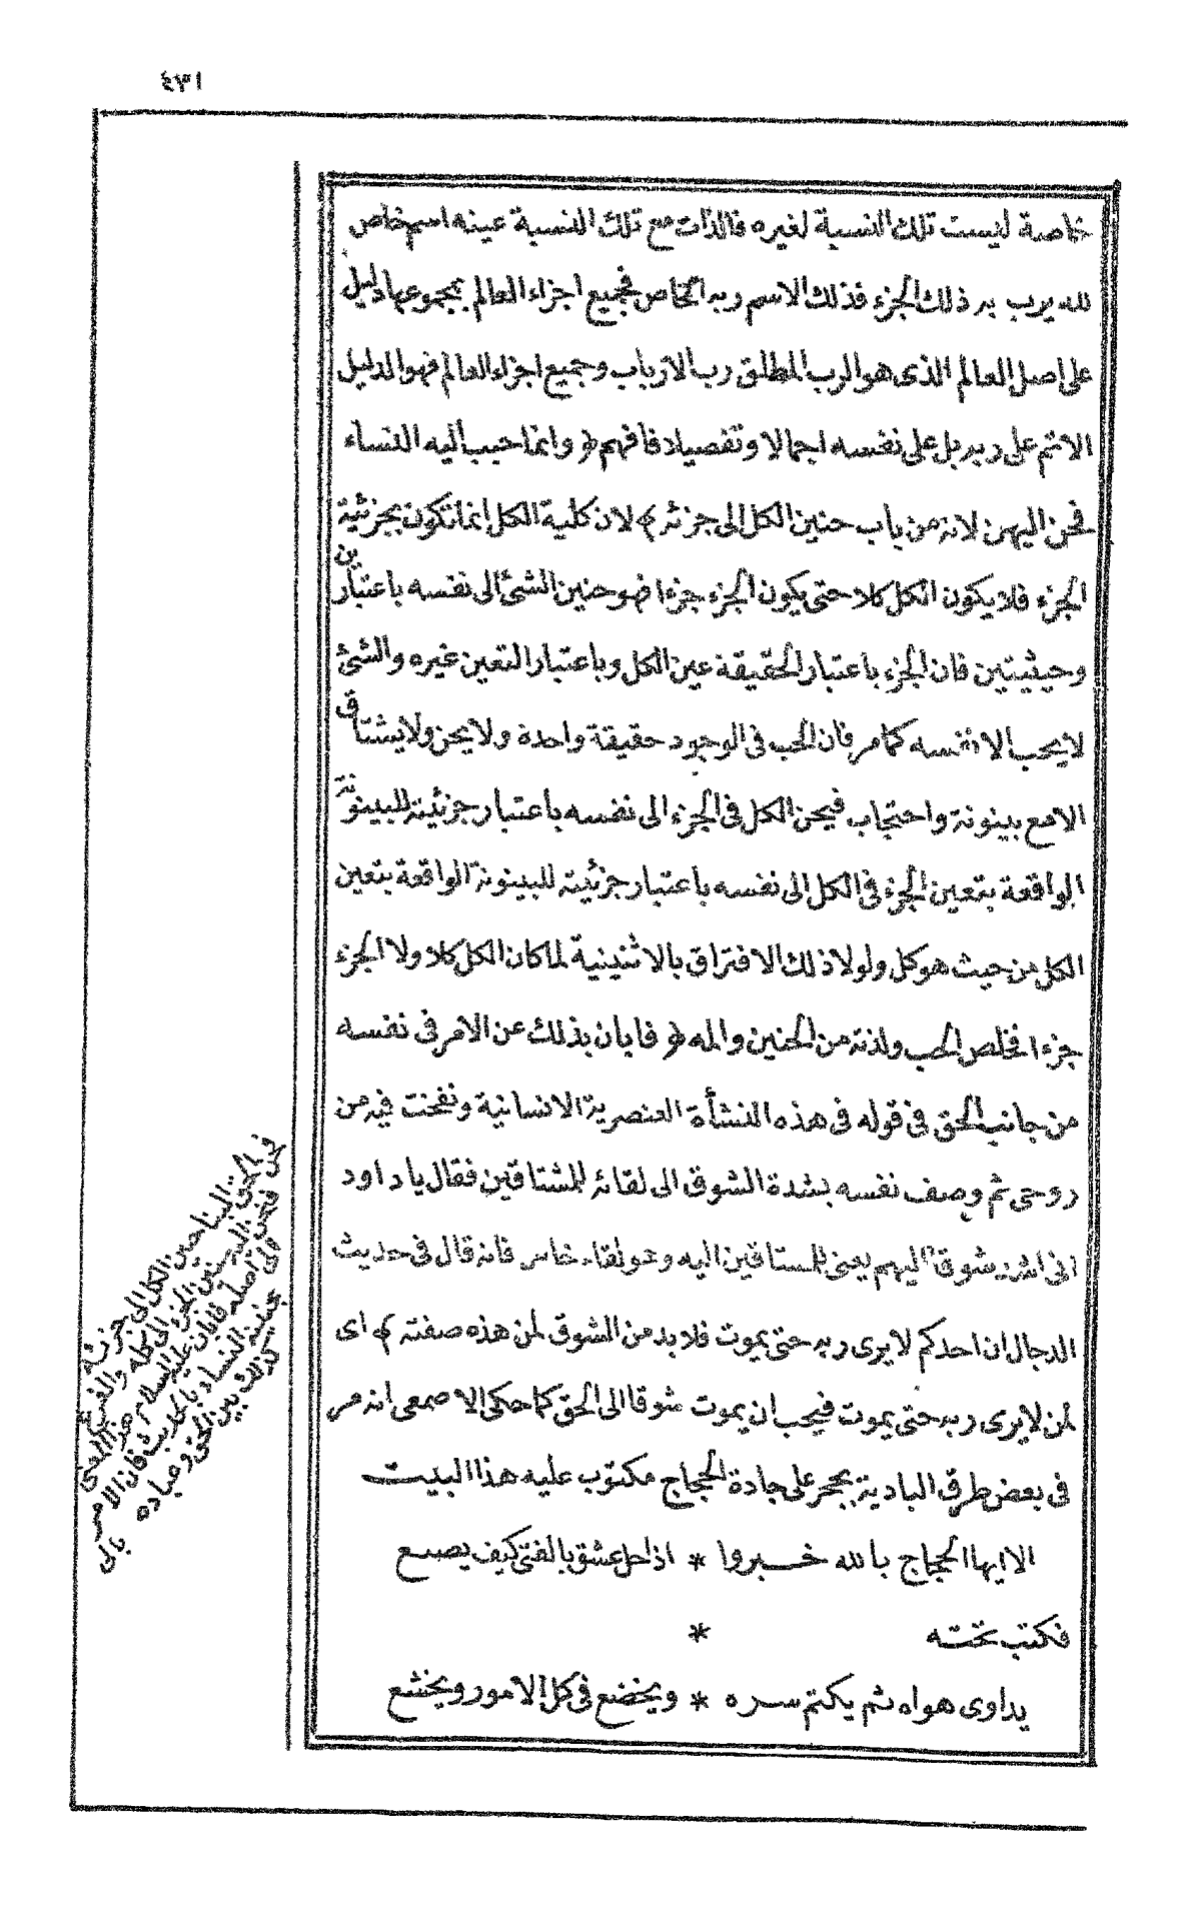 ٤٣١
خاصة ليست تلك النسبة لغيره فالذات مع تلك النسبة عينه اسم خاص
لله يرب به ذلك الجزء فذلك الاسم ربه الخاص فجميع اجزاء العالم بمجموعها دليل
على اصل العالم الذى هو الرب المطلق رب الارباب وجميع اجزاء العالم فهو الدليل
الاتم على ربه بل على نفسه اجمالا وتفصيلا فافهم ﴿ وانما حبب اليه النساء
فحن اليهن لانه من باب حنين الكل الى جزئه ﴾ لان كلية الكل انما تكون بجزئية
الجزء فلا يكون الكل كلا حتى يكون الجزء جزءا فهو حنين الشئ الى نفسه باعتبارين
وحيثيتين فان الجزء باعتبار الحقيقة عين الكل وباعتبار التعين غيره والشئ
لا يحب الا نفسه كما مر فان الحب فى الوجود حقيقة واحدة ولا يحن ولا يشتاق
الا مع بينونة واحتجاب فيحن الكل فى الجزء الى نفسه باعتبار جزئيته للبينونة
الواقعة بتعين الجزء فى الكل الى نفسه باعتبار جزئيته للبينونة الواقعة بتعين
الكل من حيث هو كل ولولا ذلك الافتراق بالاثنينية لما كان الكل كلا ولا الجزء
جزءا فخلص الحب ولذته من الحنين والمه ﴿ فابان بذلك عن الامر فى نفسه
من جانب الحق فى قوله فى هذه النشأة العنصرية الانسانية ونفخت فيه من
روحى ثم وصف نفسه بشدة الشوق الى لقائه للمشتاقين فقال يا داود
انى اشد شوقا اليهم يعنى للمشتاقين اليه وهو لقاء خاص فانه قال فى حديث
الدجال ان احدكم لا يرى ربه حتى يموت فلا بد من الشوق لمن هذه صفته ﴾ اى
لمن لا يرى ربه حتى يموت فيجب ان يموت شوقا الى الحق كما حكى الاصمعى انه مر
فى بعض طرق البادية بحجر على جادة الحجاج مكتوب عليه هذا البيت
الا ايها الحجاج بالله خبروا * اذا حل عشق بالفتى كيف يصنع
فكتب تحته *
يداوى هواه ثم يكتم سره * ويخضع فى كل الامور ويخشع
فحن الحق الينا حنين الكل الى جزئه
فنحن اليه حنين الجزء الى كله والفرع
الى اصله فابان عليه السلام هذا المعنى
بمحبته النساء بالحديث فان الامر
كذلك بين الحق وعباده
بالى